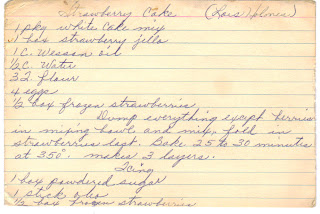 Strawberry Cake (Lois Holmes)
1 pkg white cake mix
1 box strawberry jello
1 C. Wesson oil
1/2 C. Water
3 T. flour
4 eggs
1/2 box frozen strawberries
Dump everything except berries
in mixing bowl and mix, fold in
strawberries last. Bake 25 to 30 minutes
at 350°. makes 3 layers.
Icing
1 box powdered sugar
1 stick oleo
1/2 box frozen strawberries